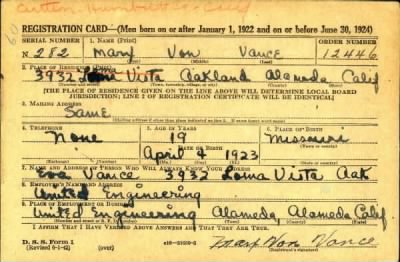 REGISTRATION CARD—(Men born on or after January 1, 1922 and on or before June 30, 1924)
SERIAL NUMBER 1. NAME (Print) ORDER NUMBER
N 282 Marx Von Vance 12446
2. PLACE OF RESIDENCE (Print)
3932 Loma Vista Oakland Alameda Calif
[THE PLACE OF RESIDENCE GIVEN ON THE LINE ABOVE WILL DETERMINE LOCAL BOARD
JURISDICTION; LINE 2 OF REGISTRATION CERTIFICATE WILL BE IDENTICAL]
3. MAILING ADDRESS
Same
4. TELEPHONE 5. AGE IN YEARS 6. PLACE OF BIRTH
None 19 Missouri
DATE OF BIRTH
April 4 1923
7. NAME AND ADDRESS OF PERSON WHO WILL ALWAYS KNOW YOUR ADDRESS
Eva Vance 3932 Loma Vista Oak
8. EMPLOYER'S NAME AND ADDRESS
United Engineering
9. PLACE OF EMPLOYMENT OR BUSINESS
United Engineering Alameda, Alameda Calif
I AFFIRM THAT I HAVE VERIFIED ABOVE ANSWERS AND THAT THEY ARE TRUE.
D. S. S. Form 1
(Revised 6-1-42) (over)
Marx Von Vance